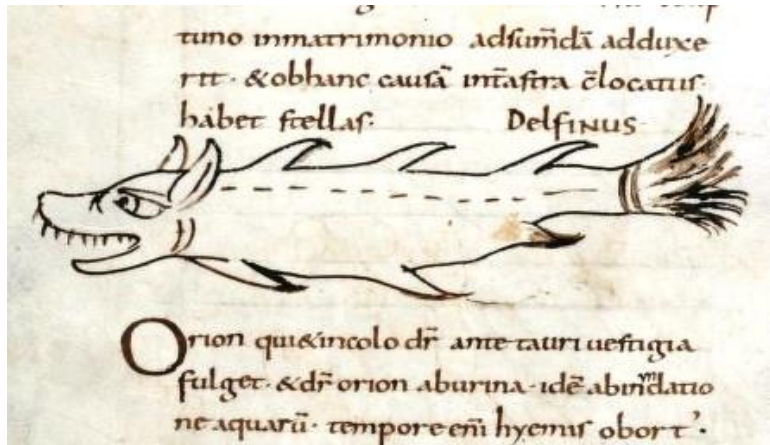 tuno inmatrimonio adsum̄dā adduxe
rit · &obhanc causā int̄astra c̄locatus·
habet stellas· DelfINUS
Orion qui&incolo dr̄ ante tauri uestigia
fulget · & dr̄ orion aburina · idē
ne aquarū · tempore enī hyemis obort᾽·